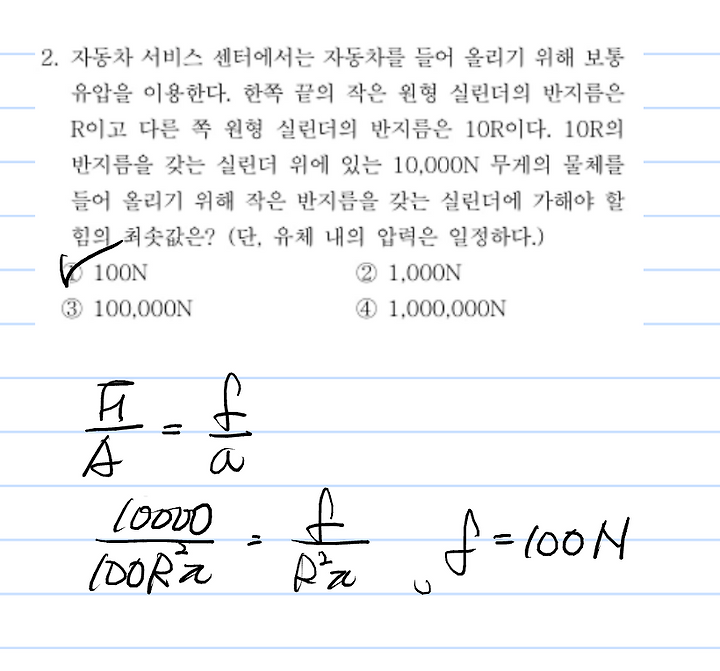 2. 자동차 서비스 센터에서는 자동차를 들어 올리기 위해 보통
유압을 이용한다. 한쪽 끝의 작은 원형 실린더의 반지름은
R이고 다른 쪽 원형 실린더의 반지름은 10R이다. 10R의
반지름을 갖는 실린더 위에 있는 10,000N 무게의 물체를
들어 올리기 위해 작은 반지름을 갖는 실린더에 가해야 할
힘의 최솟값은? (단, 유체 내의 압력은 일정하다.)
① 100N ② 1,000N
③ 100,000N ④ 1,000,000N
F/A = f/a
10000/100R²π = f/R²π , f = 100N